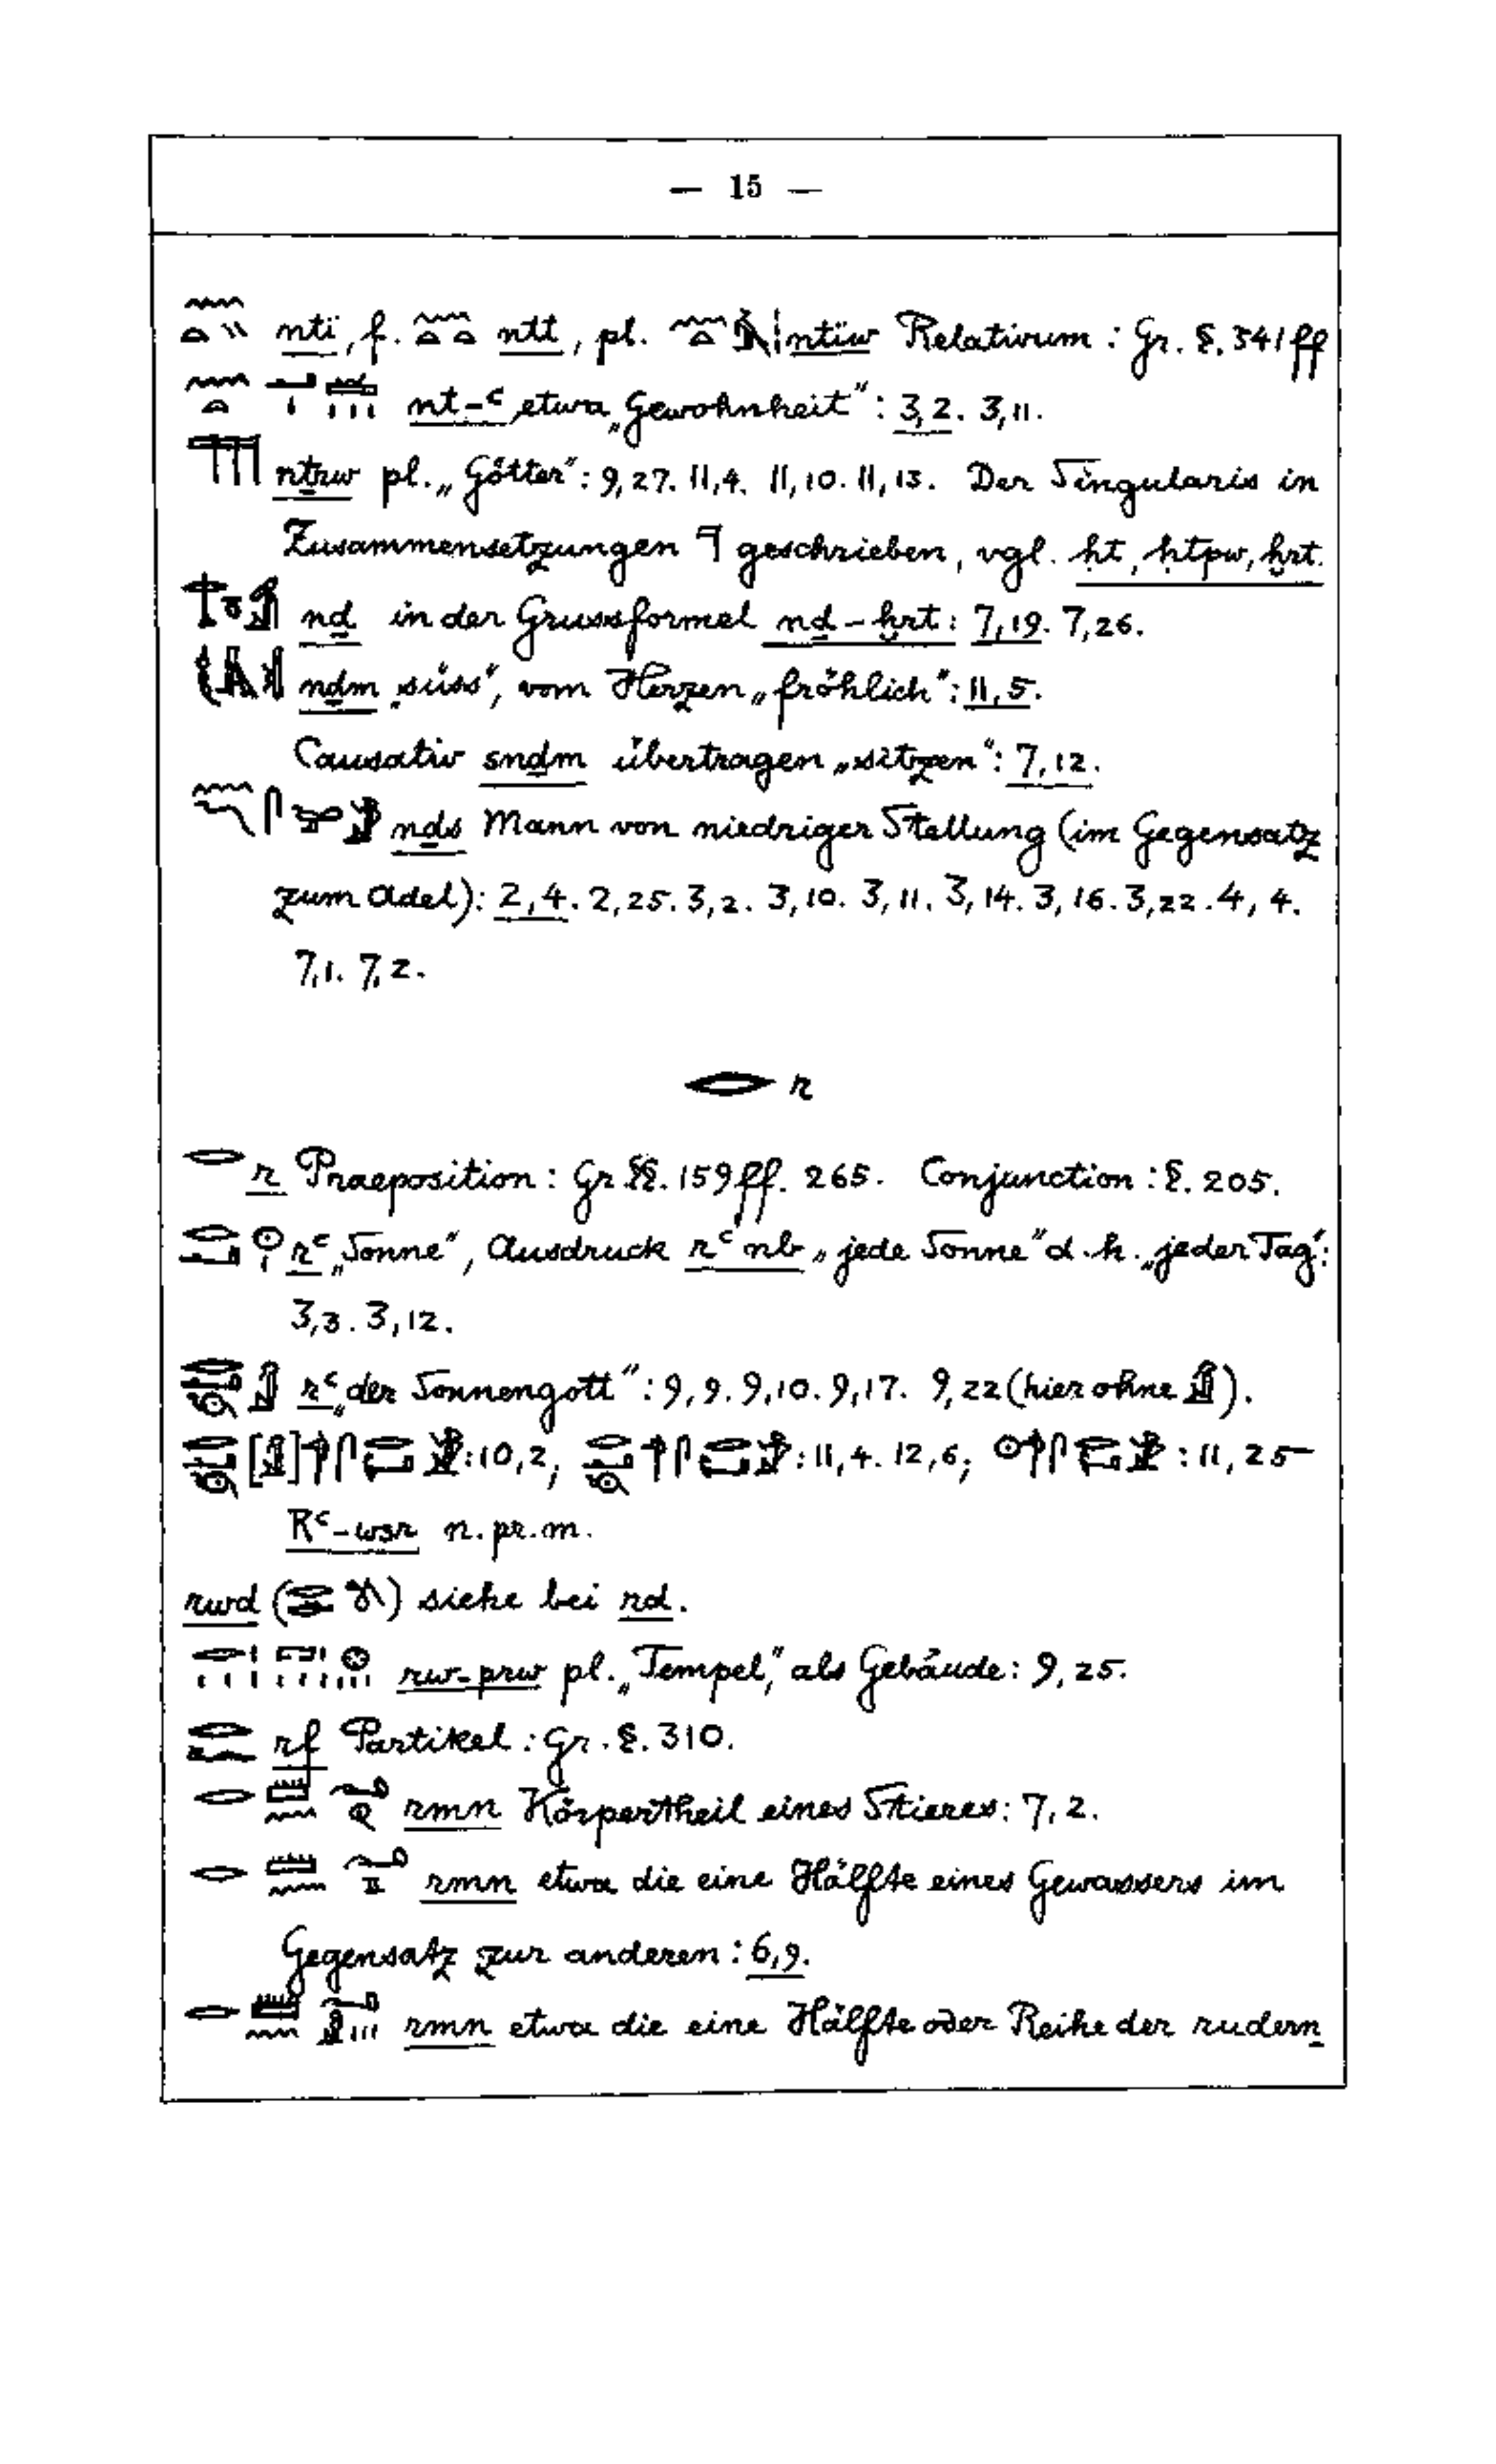 — 15 —
nti, f. ntt, pl. ntiw Relativum : Gr. §. 341 ff
nt-ꜥ etwa „Gewohnheit“ : 3,2. 3,11.
nṯrw pl. „Götter“ : 9,27. 11,4. 11,10. 11,13. Der Singularis in
Zusammensetzungen 𓊹 geschrieben, vgl. ḥt, ḥtpw, ẖrt.
nḏ in der Grussformel nḏ-ḫrt : 7,19. 7,26.
nḏm „süss“, vom Herzen „fröhlich“ : 11,5.
Causativ snḏm übertragen „sitzen“ : 7,12.
nḏs Mann von niedriger Stellung (im Gegensatz
zum Adel) : 2,4. 2,25. 3,2. 3,10. 3,11. 3,14. 3,16. 3,22. 4,4.
7,1. 7,2.
𓂋 r
𓂋 r Praeposition : Gr. §§. 159 ff. 265. Conjunction : §. 205.
𓂋𓂝𓇳𓏤 rꜥ „Sonne“, Ausdruck rꜥ nb „jede Sonne“ d. h. „jeder Tag“ :
3,3. 3,12.
rꜥ „der Sonnengott“ : 9,9. 9,10. 9,17. 9,22 (hier ohne 𓀭).
: 10,2; : 11,4. 12,6; : 11,25 —
Rꜥ-wsr n. pr. m.
rwd () siehe bei rd.
rw-prw pl. „Tempel,“ als Gebäude : 9,25.
𓂋𓆑 rf Partikel : Gr. §. 310.
rmn Körpertheil eines Stieres : 7,2.
rmn etwa die eine Hälfte eines Gewassers im
Gegensatz zur anderen : 6,9.
rmn etwa die eine Hälfte oder Reihe der rudern